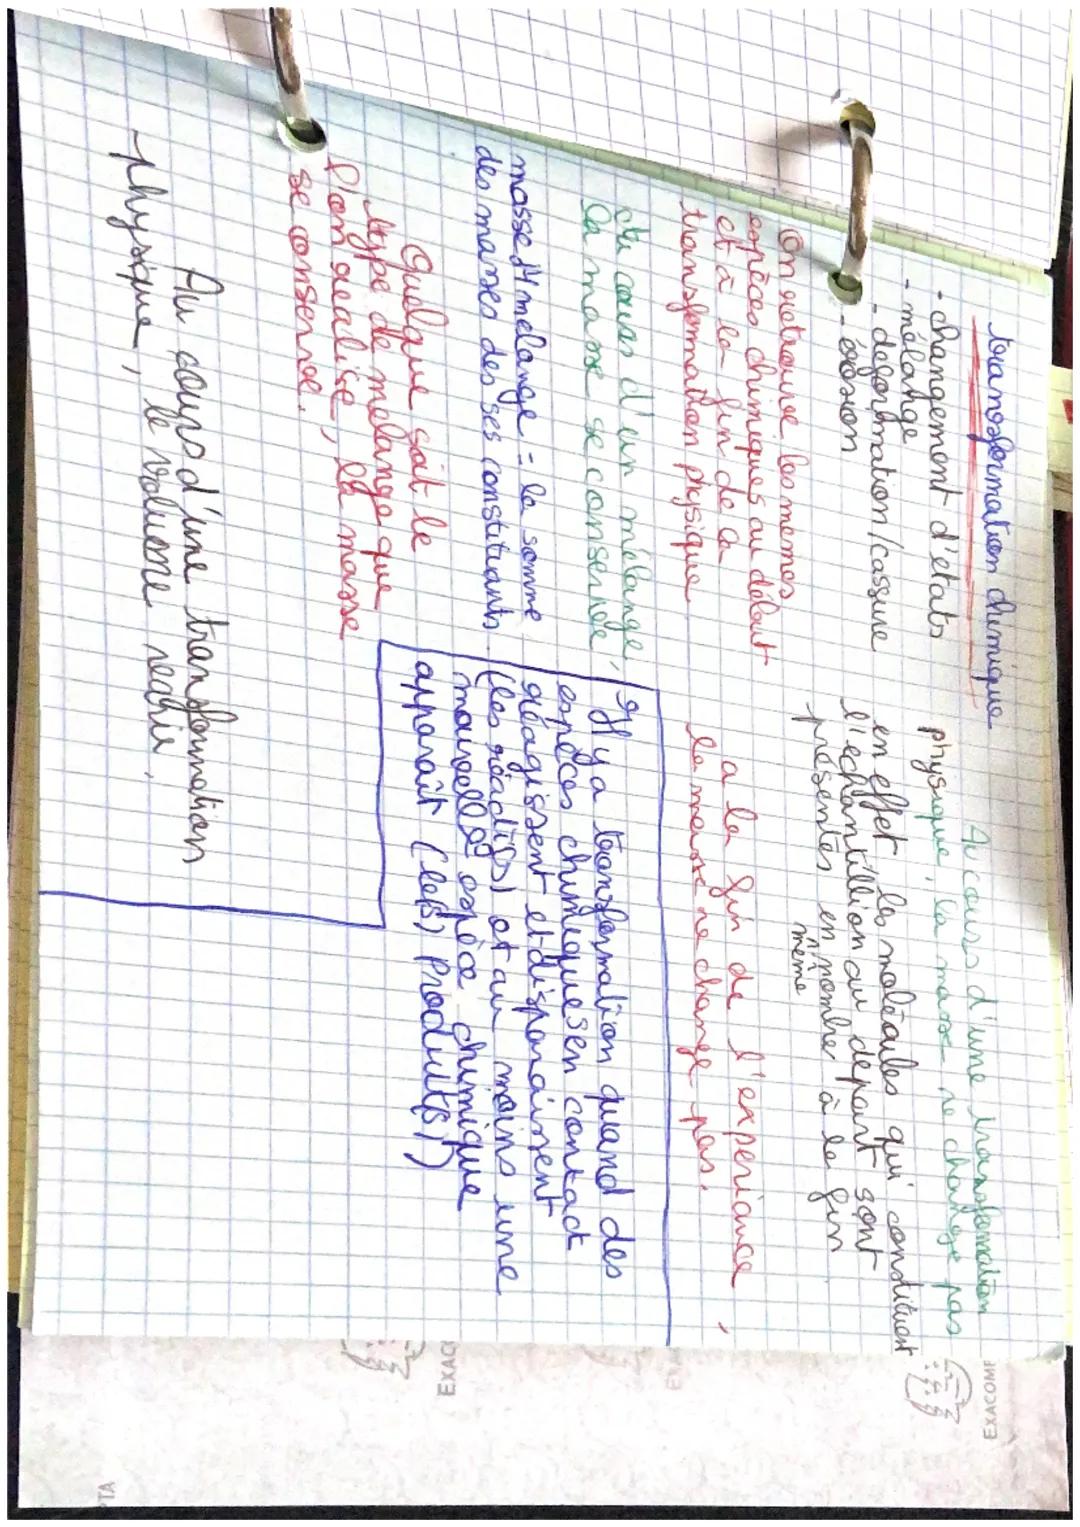 transformation chimique
- changement d'etats
- mélange
- deformation/cassure
- érosion
On retrouve les memes
espèces chimiques au début
et à la fin de la
transformation physique
Au cours d'un mélange,
la masse se conserve,
masse d'1 melange = la somme
des masses des ses constituants.
Quelque soit le
type de melange que
l'on realise, la masse
se conserve.
Au cours d'une transformation
physique, le volume
Au cours d'une transformation
physique, la masse ne change pas
en effet les molécules qui constituent
l'echantillion au depart sont
présentes en même nombre à la fin
a la fin de l'experience,
la masse ne change pas.
Il y a transformation quand des
espèces chimiques en contact
réagissent et disparaissent
(les réactifs) et au moins une
nouvelle espèce chimique
apparaît (le(s) produit(s))
EXACOMP
EXAC
EXA
TA